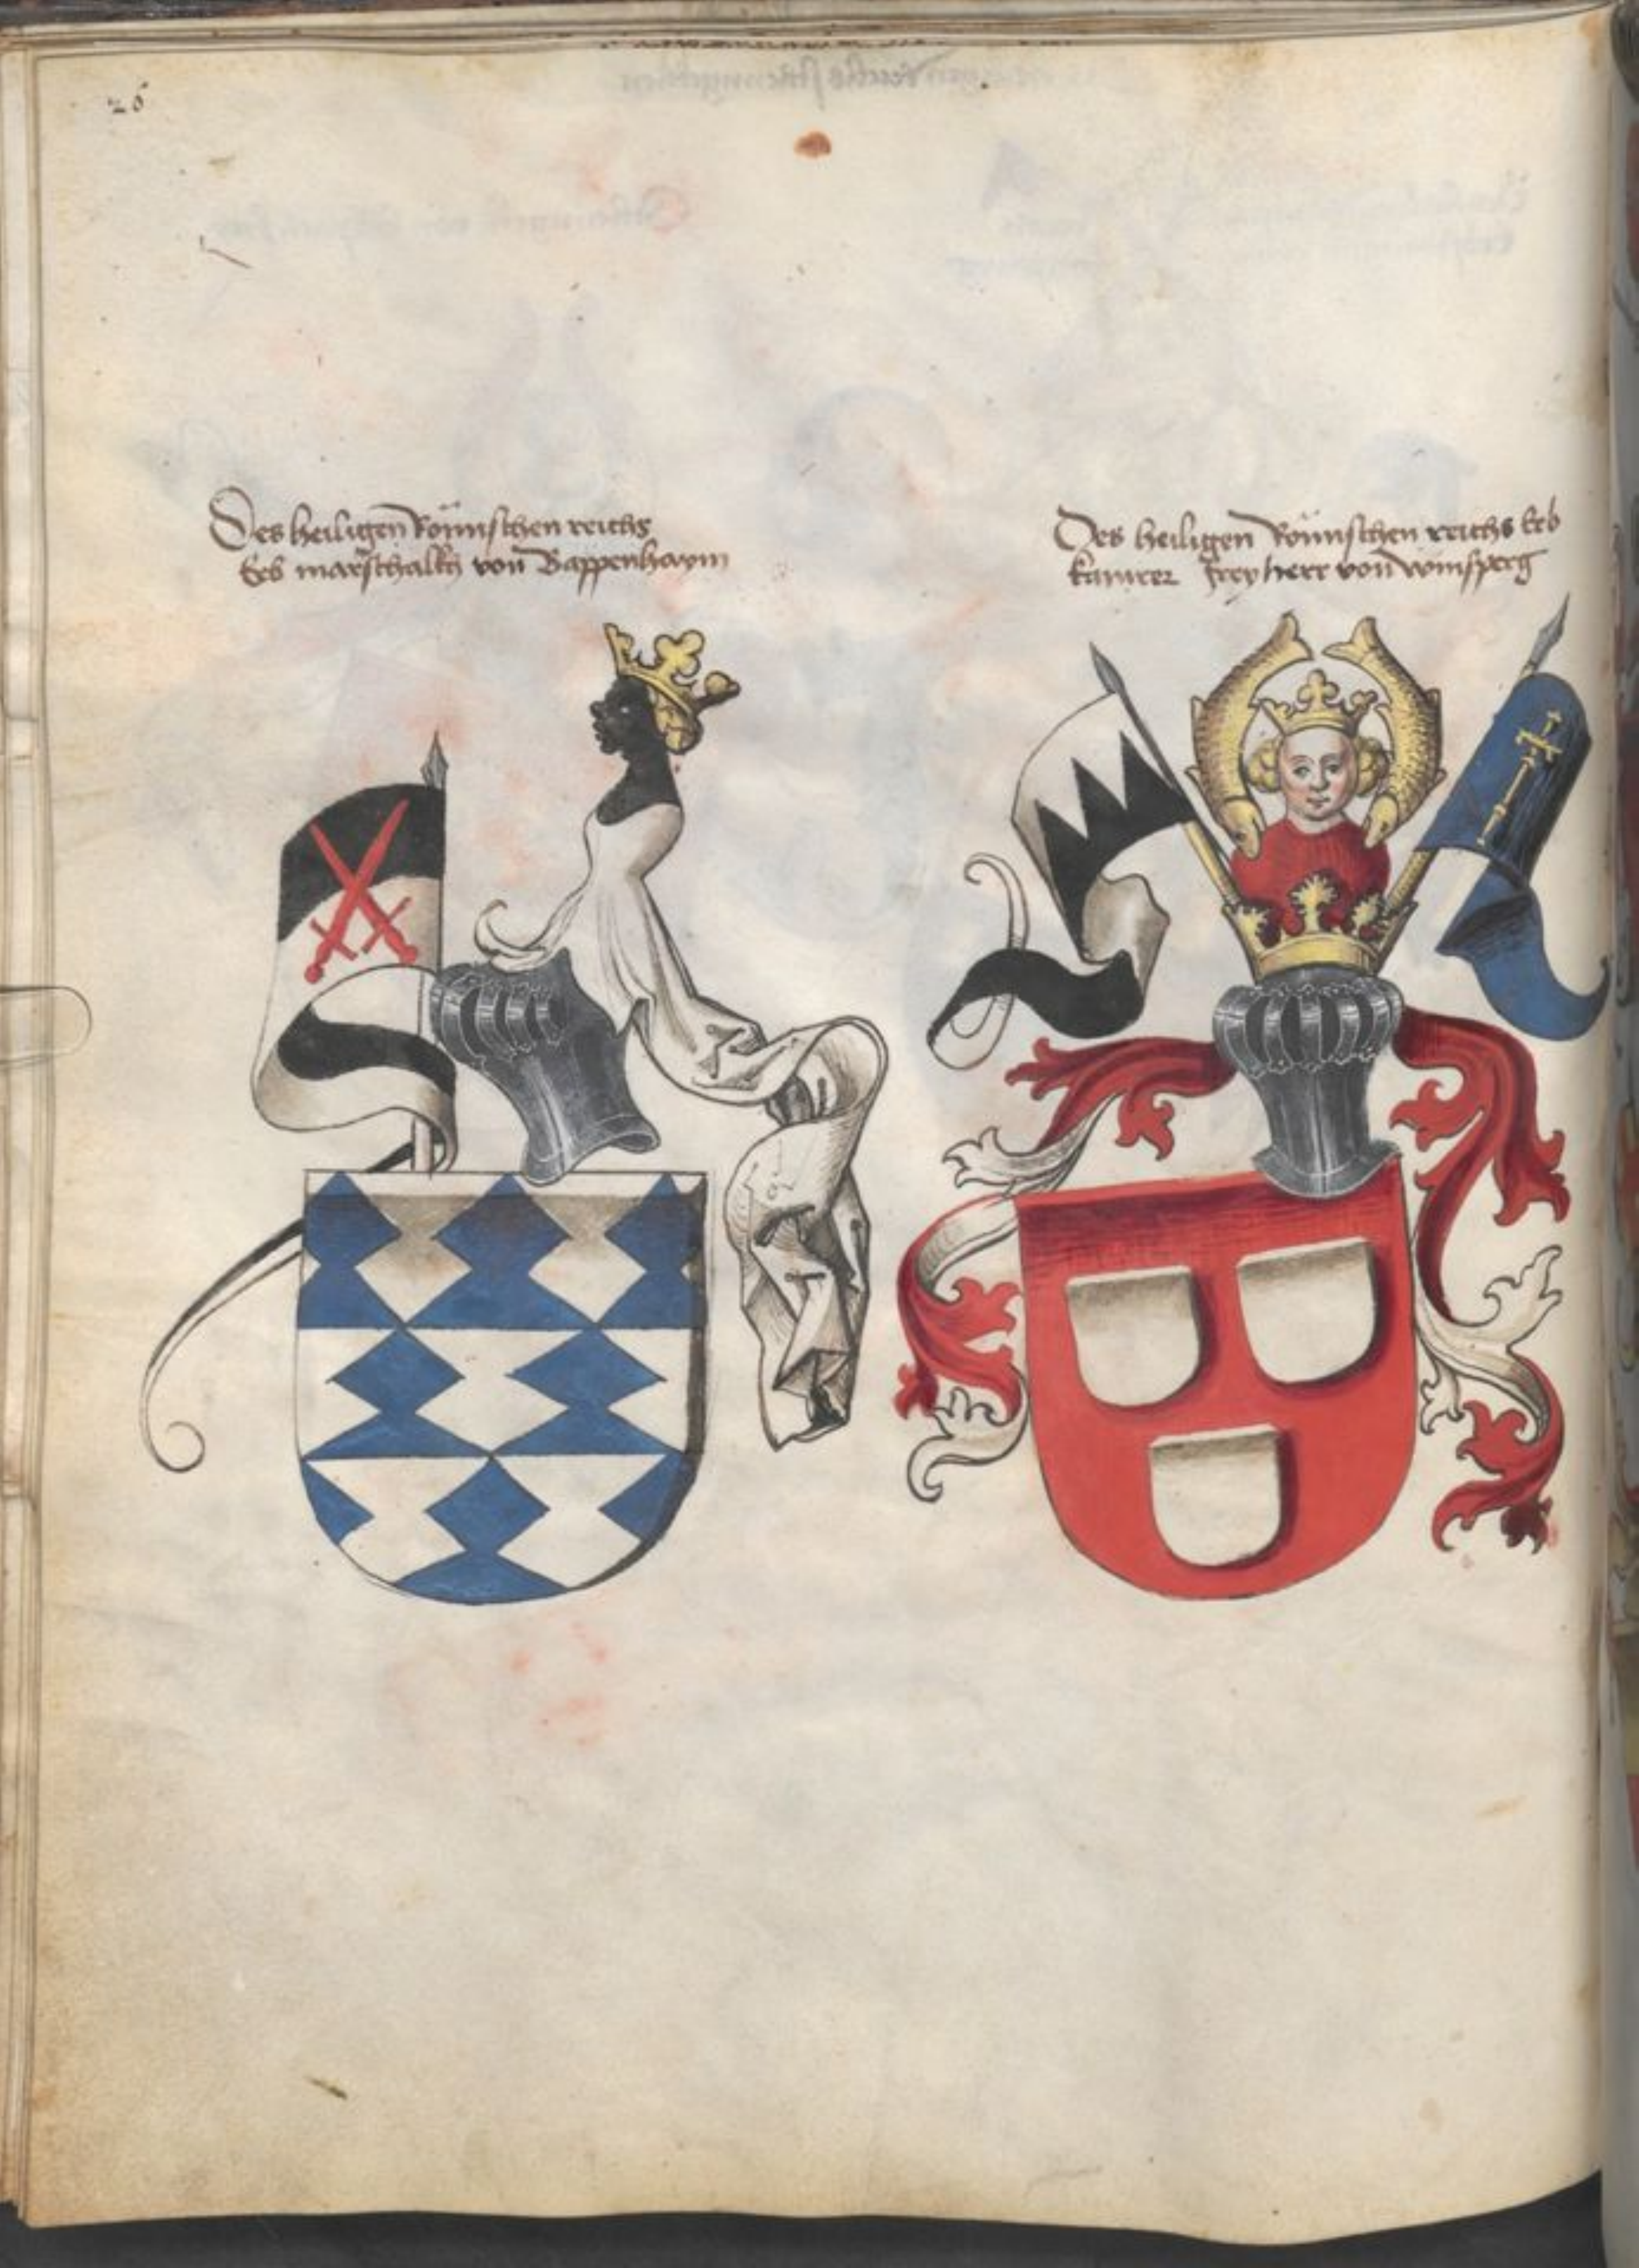 26
Des heiligen Römischen reichs
Erb marschalkh von Bappenhaym
Des heiligen Römischen reichs Erb
kamrer freyherr von winsperg